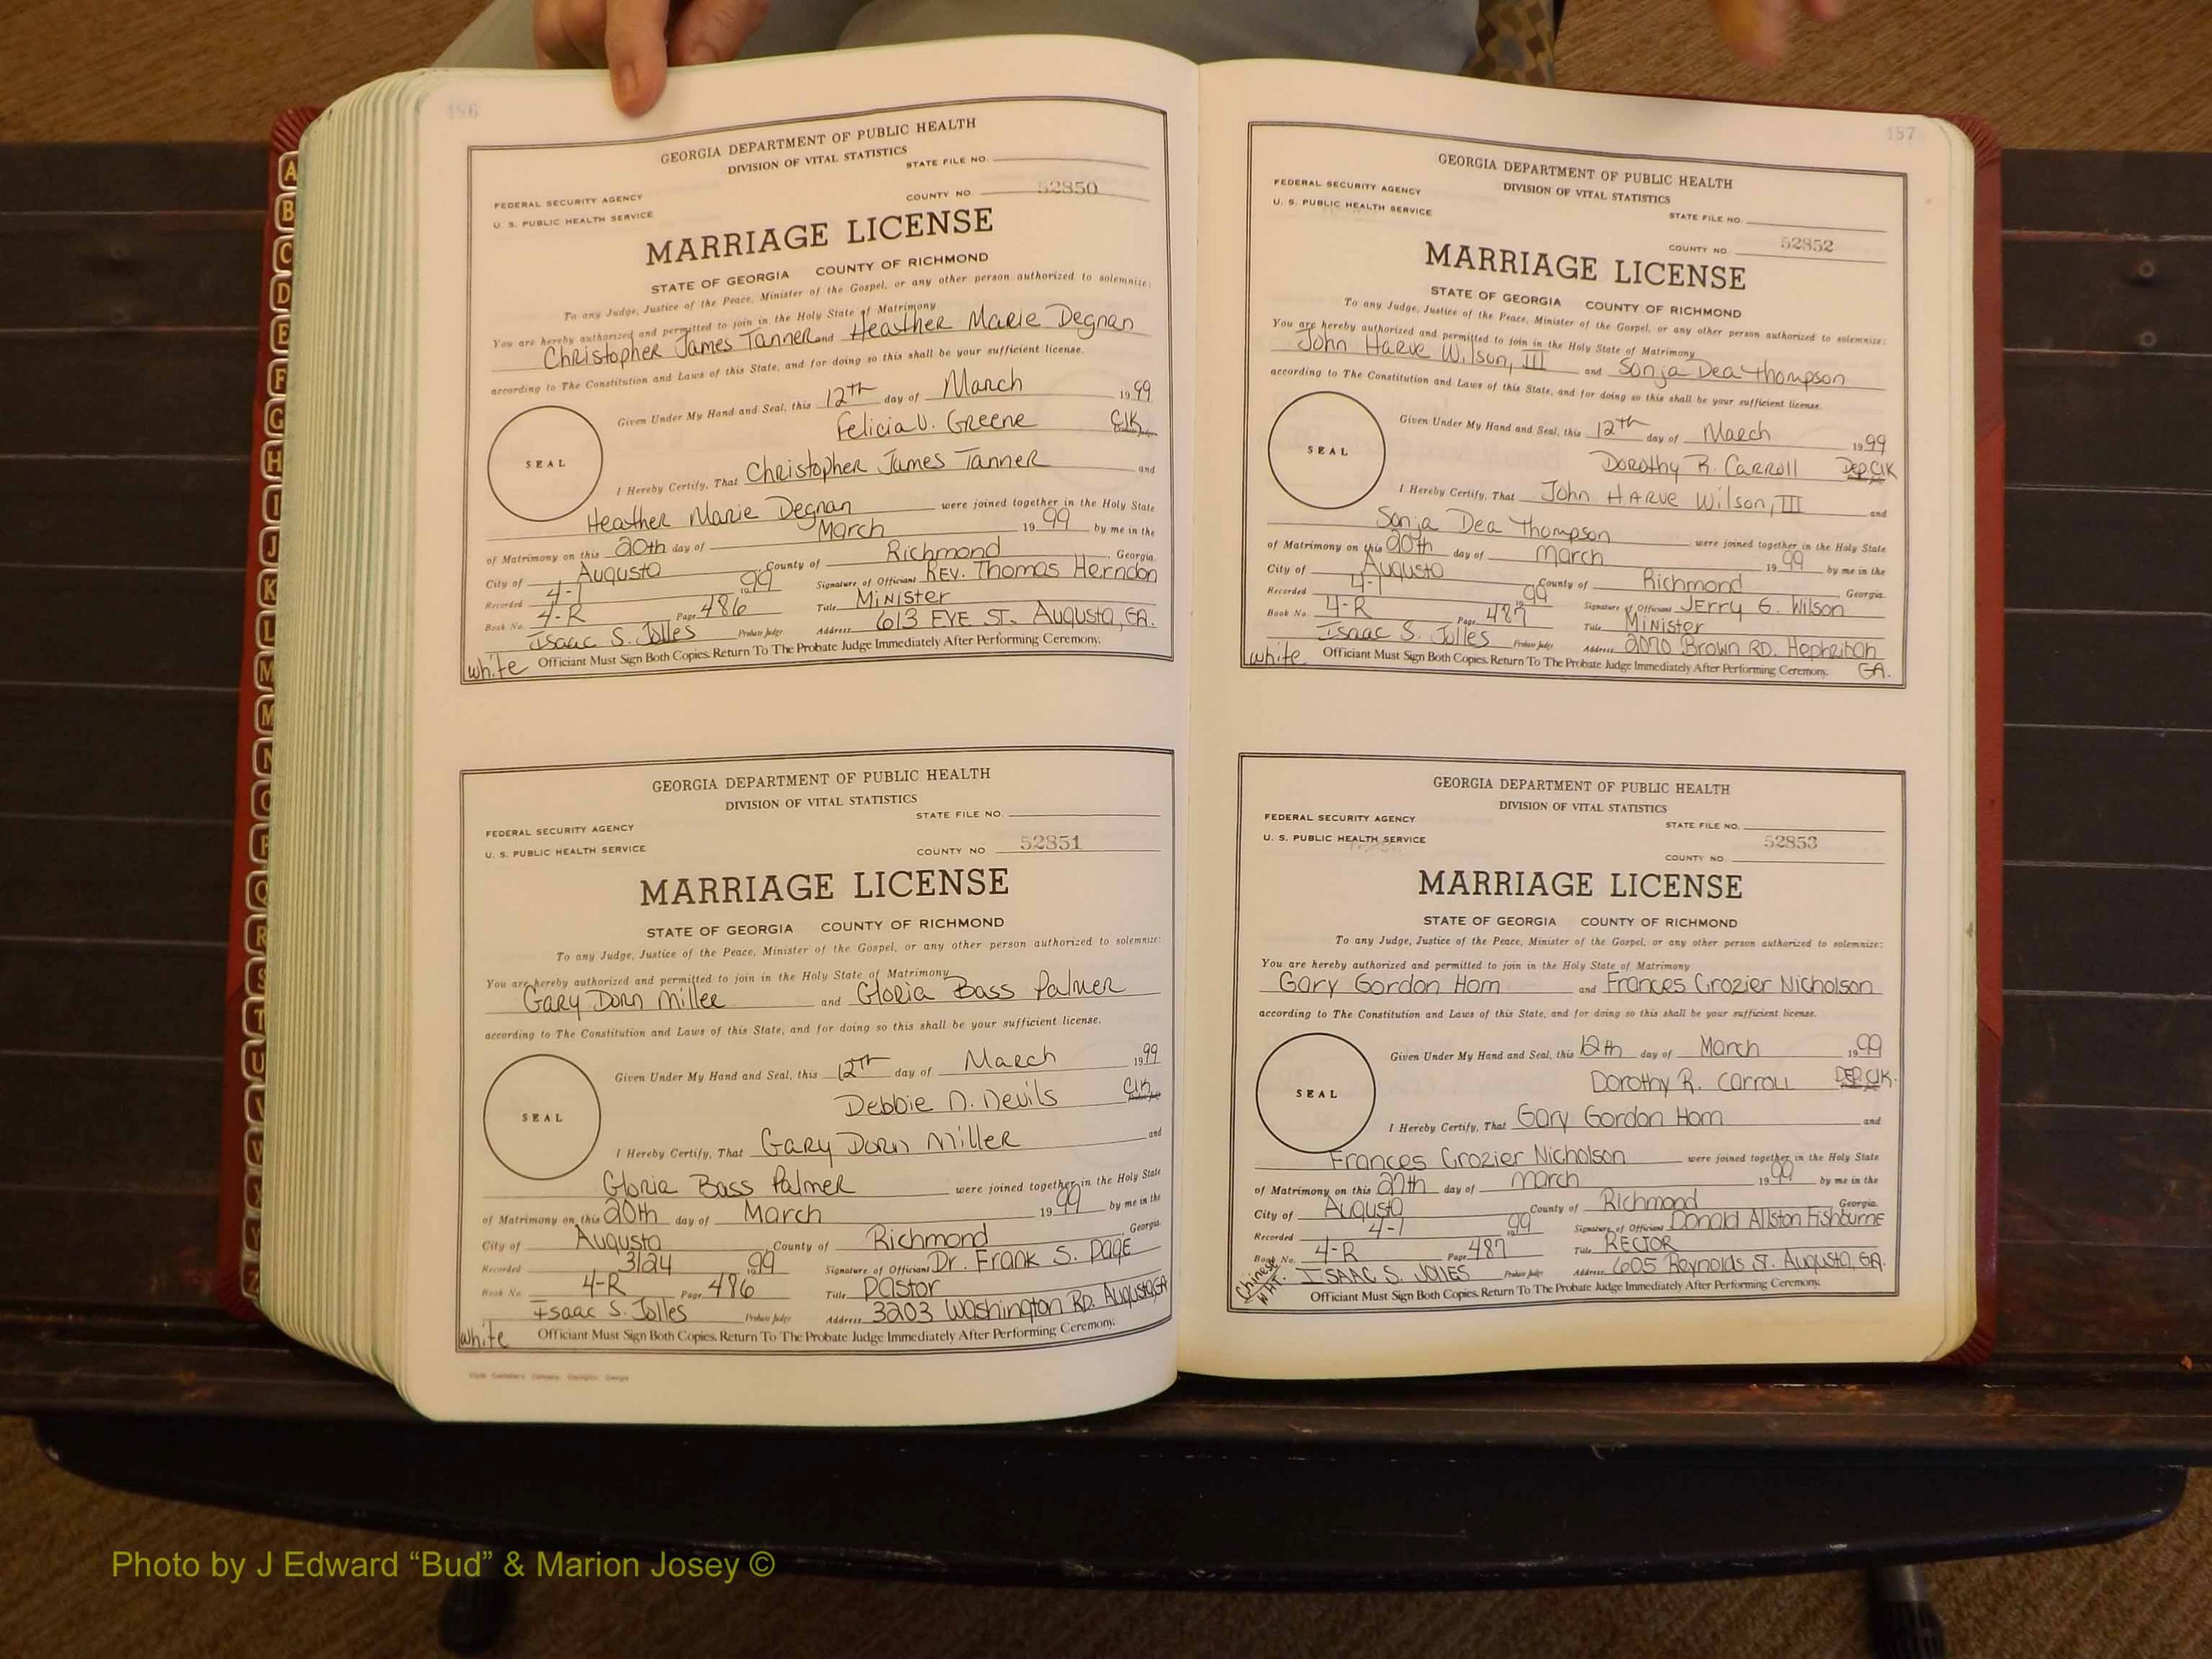 486
GEORGIA DEPARTMENT OF PUBLIC HEALTH
DIVISION OF VITAL STATISTICS
STATE FILE NO.
FEDERAL SECURITY AGENCY
COUNTY NO. 52850
U. S. PUBLIC HEALTH SERVICE
MARRIAGE LICENSE
STATE OF GEORGIA COUNTY OF RICHMOND
To any Judge, Justice of the Peace, Minister of the Gospel, or any other person authorized to solemnize:
You are hereby authorized and permitted to join in the Holy State of Matrimony
Christopher James Tanner and Heather Marie Degnan
according to The Constitution and Laws of this State, and for doing so this shall be your sufficient license.
Given Under My Hand and Seal, this 12th day of March 1999
Felicia V. Greene Clk
SEAL
I Hereby Certify, That Christopher James Tanner and
Heather Marie Degnan were joined together in the Holy State
of Matrimony on this 20th day of March 1999 by me in the
City of Augusta County of Richmond, Georgia.
Recorded 4-1 1999 Signature of Officiant Rev. Thomas Herndon
Book No. 4-R Page 486 Title Minister
Isaac S. Jolles Probate Judge Address 613 EVE ST. Augusta, GA.
white Officiant Must Sign Both Copies. Return To The Probate Judge Immediately After Performing Ceremony.
GEORGIA DEPARTMENT OF PUBLIC HEALTH
DIVISION OF VITAL STATISTICS
STATE FILE NO.
FEDERAL SECURITY AGENCY
U. S. PUBLIC HEALTH SERVICE
COUNTY NO 52851
MARRIAGE LICENSE
STATE OF GEORGIA COUNTY OF RICHMOND
To any Judge, Justice of the Peace, Minister of the Gospel, or any other person authorized to solemnize:
You are hereby authorized and permitted to join in the Holy State of Matrimony
Gary Dorn Miller and Gloria Bass Palmer
according to The Constitution and Laws of this State, and for doing so this shall be your sufficient license.
Given Under My Hand and Seal, this 12th day of March 1999
Debbie D. Nevils Clk
SEAL
I Hereby Certify, That Gary Dorn Miller and
Gloria Bass Palmer were joined together in the Holy State
of Matrimony on this 20th day of March 1999 by me in the
City of Augusta County of Richmond, Georgia.
Recorded 3/24 1999 Signature of Officiant Dr. Frank S. Page
Book No. 4-R Page 486 Title Pastor
Isaac S. Jolles Probate Judge Address 3203 Washington RD. Augusta, GA
white Officiant Must Sign Both Copies. Return To The Probate Judge Immediately After Performing Ceremony.
487
GEORGIA DEPARTMENT OF PUBLIC HEALTH
DIVISION OF VITAL STATISTICS
FEDERAL SECURITY AGENCY
U. S. PUBLIC HEALTH SERVICE
STATE FILE NO.
COUNTY NO. 52852
MARRIAGE LICENSE
STATE OF GEORGIA COUNTY OF RICHMOND
To any Judge, Justice of the Peace, Minister of the Gospel, or any other person authorized to solemnize:
You are hereby authorized and permitted to join in the Holy State of Matrimony
John Harve Wilson, III and Sonja Dea Thompson
according to The Constitution and Laws of this State, and for doing so this shall be your sufficient license.
Given Under My Hand and Seal, this 12th day of March 1999
Dorothy R. Carroll Dep. Clk
SEAL
I Hereby Certify, That John Harve Wilson, III and
Sonja Dea Thompson were joined together in the Holy State
of Matrimony on this 20th day of March 1999 by me in the
City of Augusta County of Richmond Georgia.
Recorded 4-1 1999 Signature of Officiant Jerry G. Wilson
Book No. 4-R Page 487 Title Minister
Isaac S. Jolles Probate Judge Address 2070 Brown RD. Hephzibah
white Officiant Must Sign Both Copies. Return To The Probate Judge Immediately After Performing Ceremony. GA.
GEORGIA DEPARTMENT OF PUBLIC HEALTH
DIVISION OF VITAL STATISTICS
FEDERAL SECURITY AGENCY
STATE FILE NO.
U. S. PUBLIC HEALTH SERVICE
52853
COUNTY NO
MARRIAGE LICENSE
STATE OF GEORGIA COUNTY OF RICHMOND
To any Judge, Justice of the Peace, Minister of the Gospel, or any other person authorized to solemnize:
You are hereby authorized and permitted to join in the Holy State of Matrimony
Gary Gordon Hom and Frances Crozier Nicholson
according to The Constitution and Laws of this State, and for doing so this shall be your sufficient license.
Given Under My Hand and Seal, this 12th day of March 1999
Dorothy R. Carroll DEP. Clk.
SEAL
I Hereby Certify, That Gary Gordon Hom and
Frances Crozier Nicholson were joined together in the Holy State
of Matrimony on this 27th day of March 1999 by me in the
City of Augusta County of Richmond Georgia.
Recorded 4-1 1999 Signature of Officiant Donald Allston Fishburne
Book No. 4-R Page 487 Title RECTOR
Chinese WHT. ISAAC S. JOLLES Probate Judge Address 605 Reynolds ST. Augusta, GA.
Officiant Must Sign Both Copies. Return To The Probate Judge Immediately After Performing Ceremony.
A
B
C
D
E
F
G
H
I
J
K
L
M
M
N
O
P
Q
R
S
T
U
V
W
X
Y
Z
Photo by J Edward “Bud” & Marion Josey ©